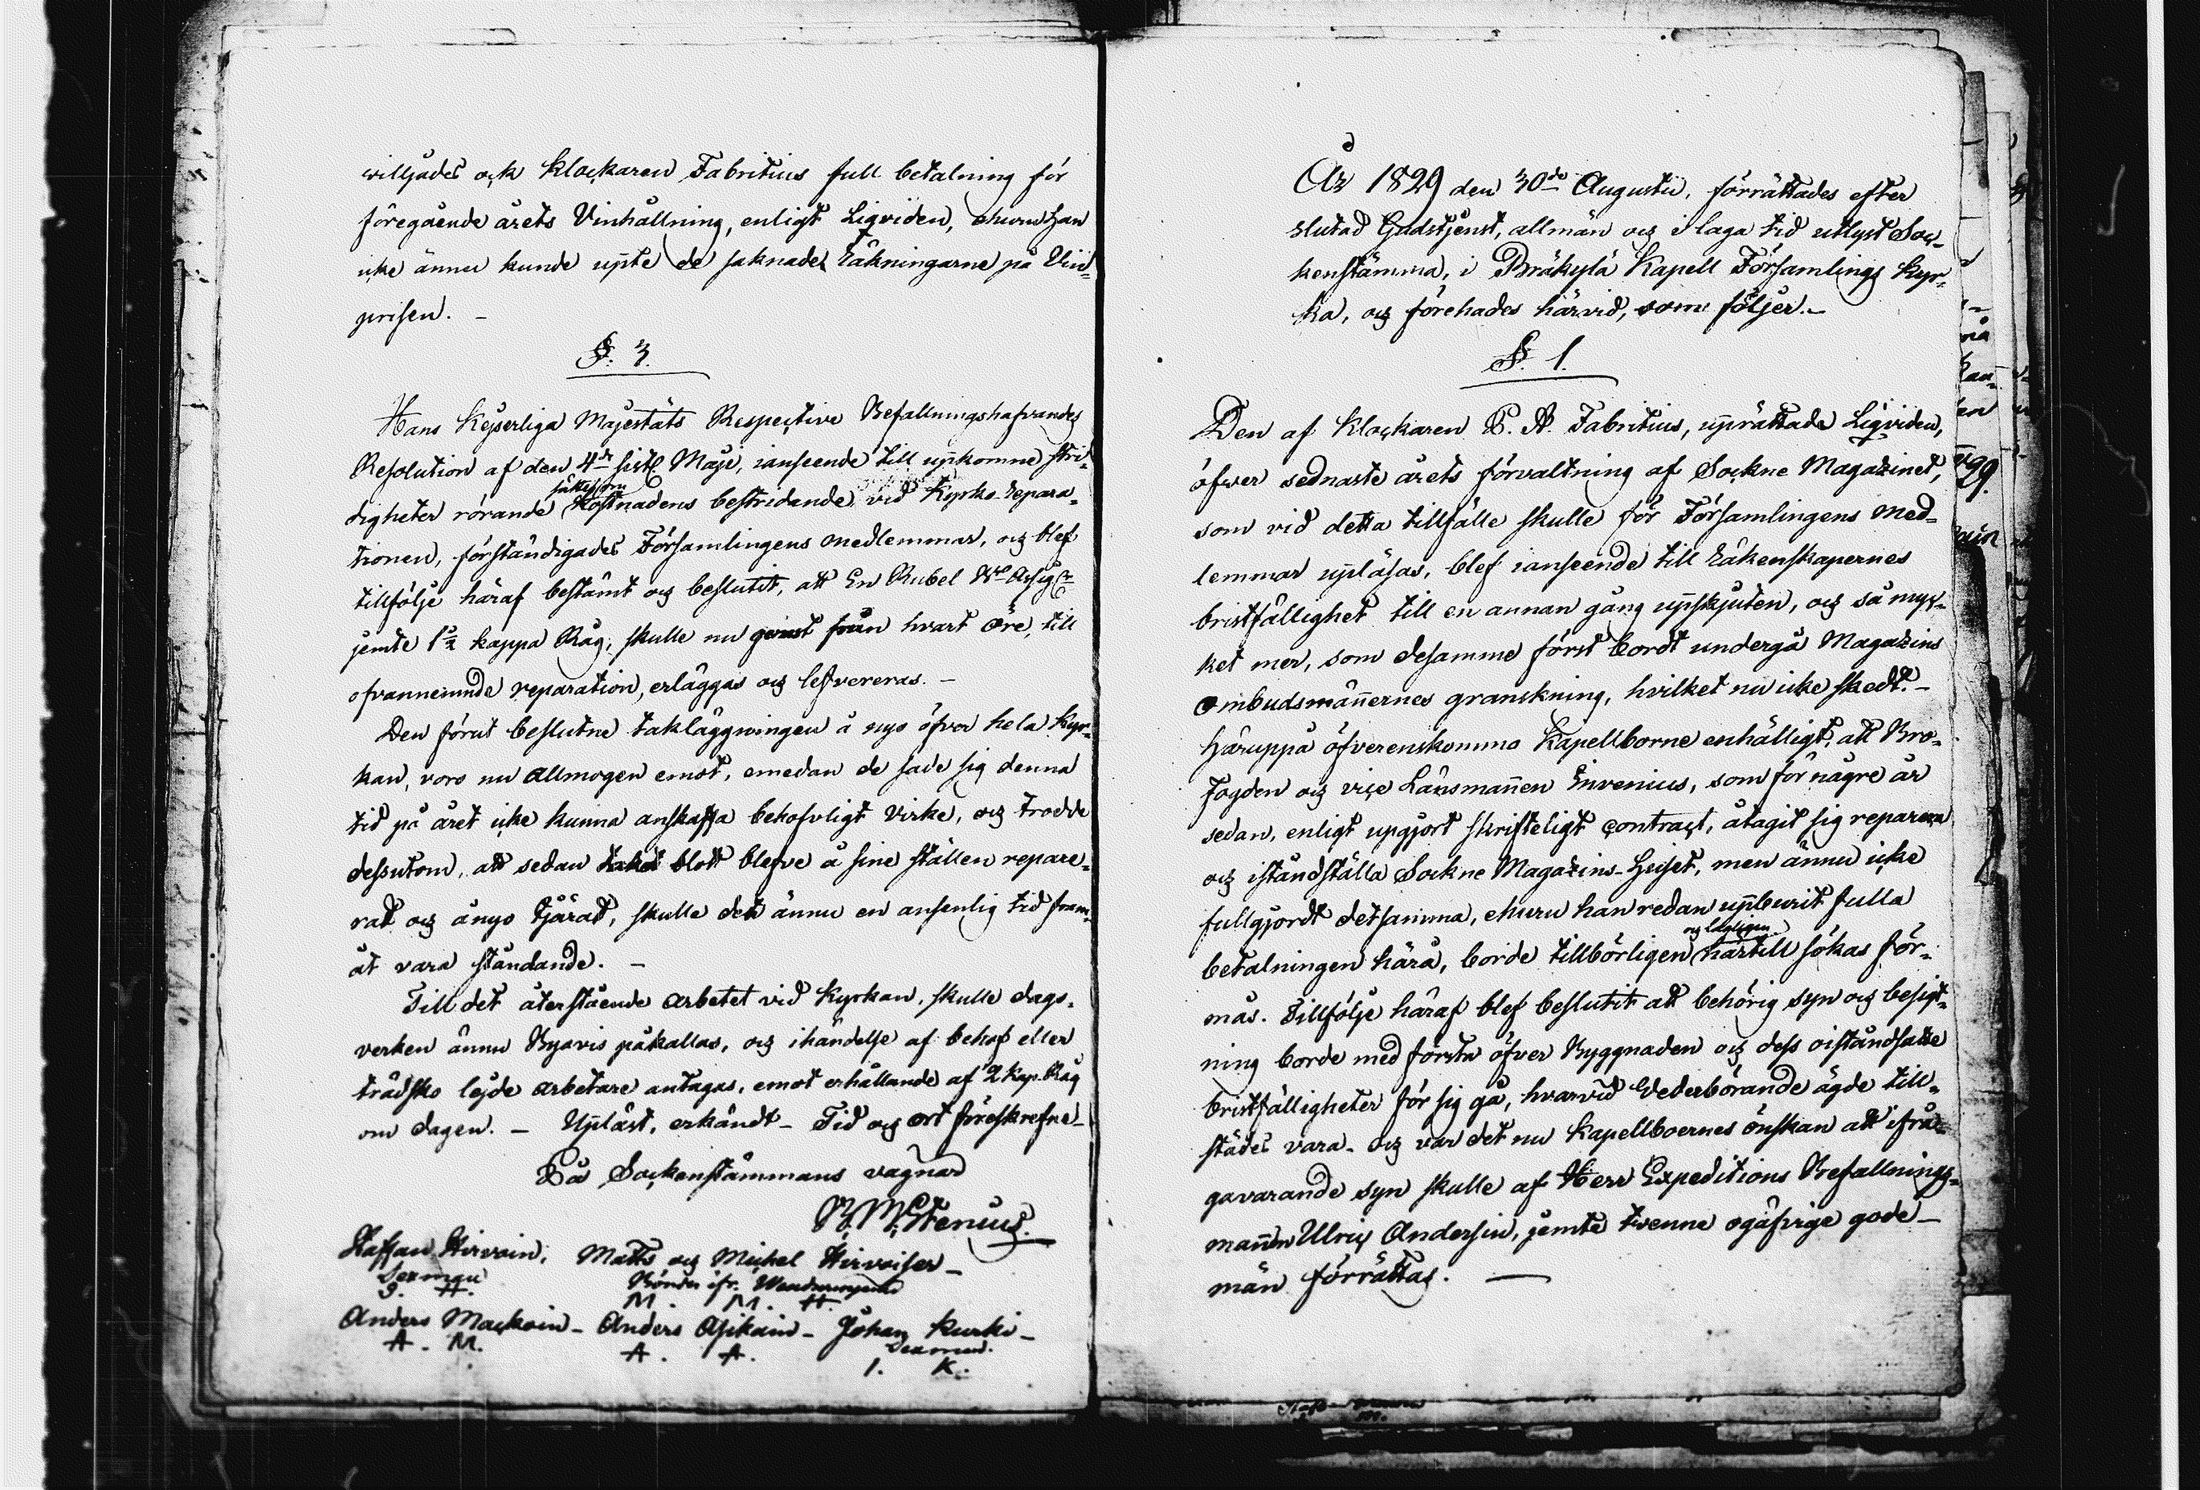 willjades ock Klockaren Fabritius full betalning för
föregående årets Vinhållning, enligt Liqviden, ehuru han
icke ännu kunde upte de saknade Räkningarne på Vin-
prisen. -
§. 3.
Hans Kejserliga Majestäts Respective Befallningshafvandes
Resolution af den 4de sistl. Maji, ianseende till upkomne stri-
digheter rörande sättet om Kostnadens bestridande vid Kyrko-repara-
tionen, förständigades Församlingens medlemmar, og blef
tillfölje häraf bestämt og beslutit, att En Rubel
jemte 1 1/2 kappa Råg, skulle nu från hvart Öre, till
ofvannemnde reparation, erläggas og lefvereras. -
Den förut beslutne takläggningen å nyo öfver hela Kyr-
kan, voro nu Allmogen emot, emedan de sade sig denna
tid på året icke kunna anskaffa behöfvligt virke, og trodde
dessutom, att sedan taket blott blefve å sine ställen repare-
rat og ånyo tjärat, skulle det ännu en ansenlig tid fram-
åt vara ståndande. -
Till det återstående arbetet vid Kyrkan, skulle dags-
verken ännu Byavis påkallas, og ihändelse af behof eller
trädsko lejde arbetare antagas, emot erhållande af 2 kap. Råg
om dagen. - Upläst, erkändt - Tid og ort föreskrefne -
På Sockenstämmans vägnar
Staffan Hirvoin, Matts og Michel Hirvoiser -
Sexman Bönder ifr.
S. H. M. M. H.
Anders Mackoin - Anders Asikain - Johan Kurki -
Sexman.
A. M. A. A. I. K.
År 1829 den 30de Augusti, förrättades efter
slutad Gudstjenst, allmän og i laga tid utlyst Soc-
kenstämma, i Bräkylä Kapell Församlings Kyr-
ka, og förehades härvid, som följer. -
§. 1.
Den af Klockaren P. A. Fabritius, uprättade Liqviden,
öfver sednaste årets förvaltning af Sockne Magazinet,
som vid detta tillfälle skulle för Församlingens med-
lemmar upläsas, blef ianseende till Räkenskapernes
bristfällighet till en annan gång upskjuten, og så myc-
ket mer, som desamme först bordt undergå Magazins
Ombudsmännernes granskning, hvilket nu icke skedt. -
Häruppå öfverenskommo Kapellborne enhälligt, att Bro-
fogden og vice Länsmannen Envenius, som för någre år
sedan, enligt upgjort skrifteligt contract, åtagit sig reparera
og iståndställa Sockne Magazins-Huset, men ännu icke
fullgjordt detsamma, ehuru han redan upburit fulla
betalningen härå, borde tillbörligen og lagligen härtill sökas för-
mås. Tillfölje häraf blef beslutit att behörig syn og besigt-
ning borde med första öfver Byggnaden og dess oiståndsatte
bristfälligheter för sig gå, hvarvid Vederbörande ägde till-
städes vara - og var det nu Kapellboernes önskan att ifrå-
gavarande syn skulle af Herr Expeditions Befallnings-
mannen Ulric Andersin, jemte tvenne ojäfvige gode -
män förrättas. —